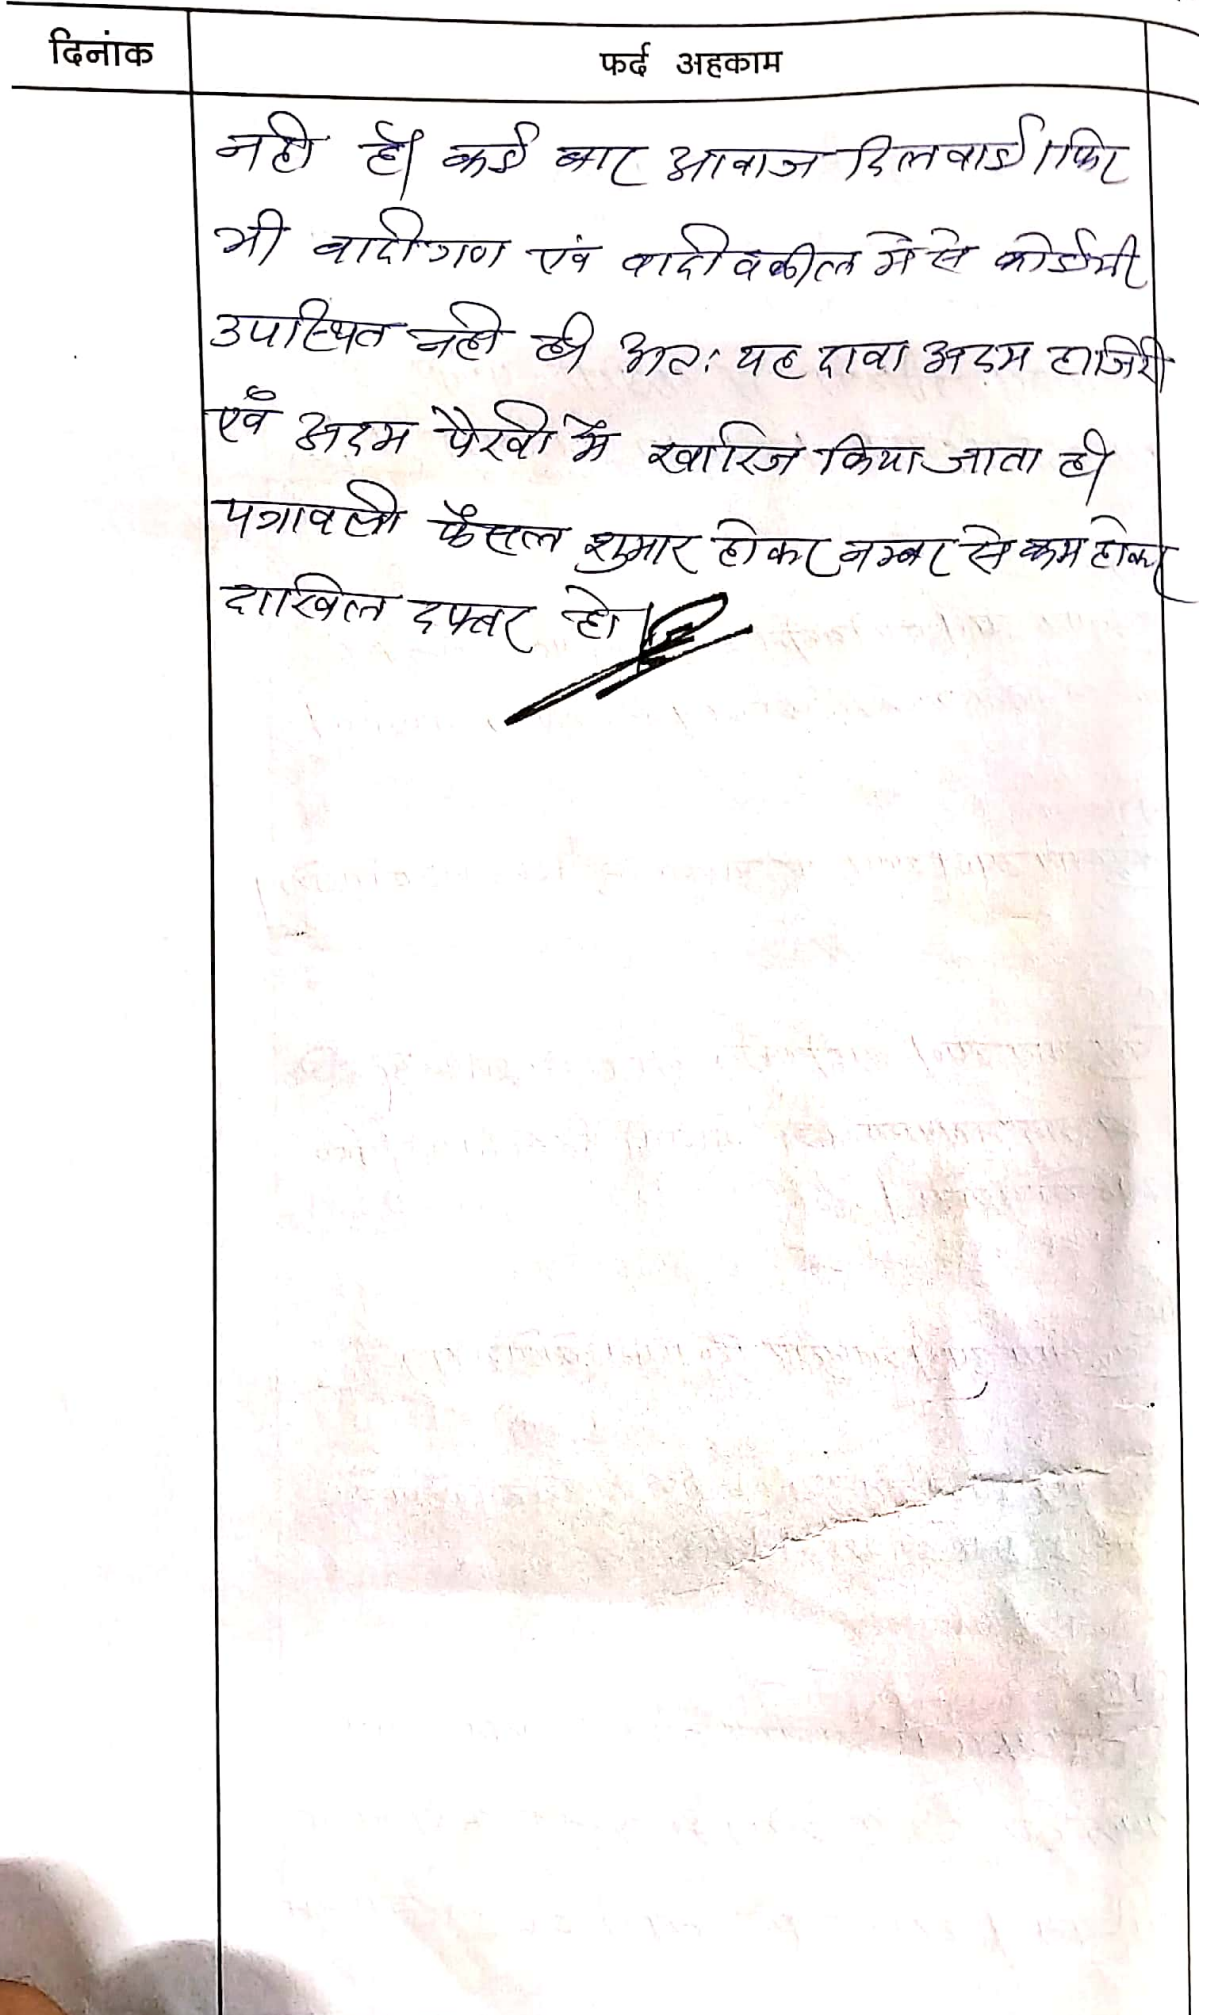 दिनांक
फर्द अहकाम
नही है। कई बार आवाज दिलवाई। फिर
भी वादीगण एवं वादी वकील मे से कोई भी
उपस्थित नही है। अतः यह दावा अदम हाजिरी
एवं अदम पैरवी में खारिज किया जाता है।
पत्रावली फैसल शुमार होकर नम्बर से कम होकर
दाखिल दफ्तर हो।